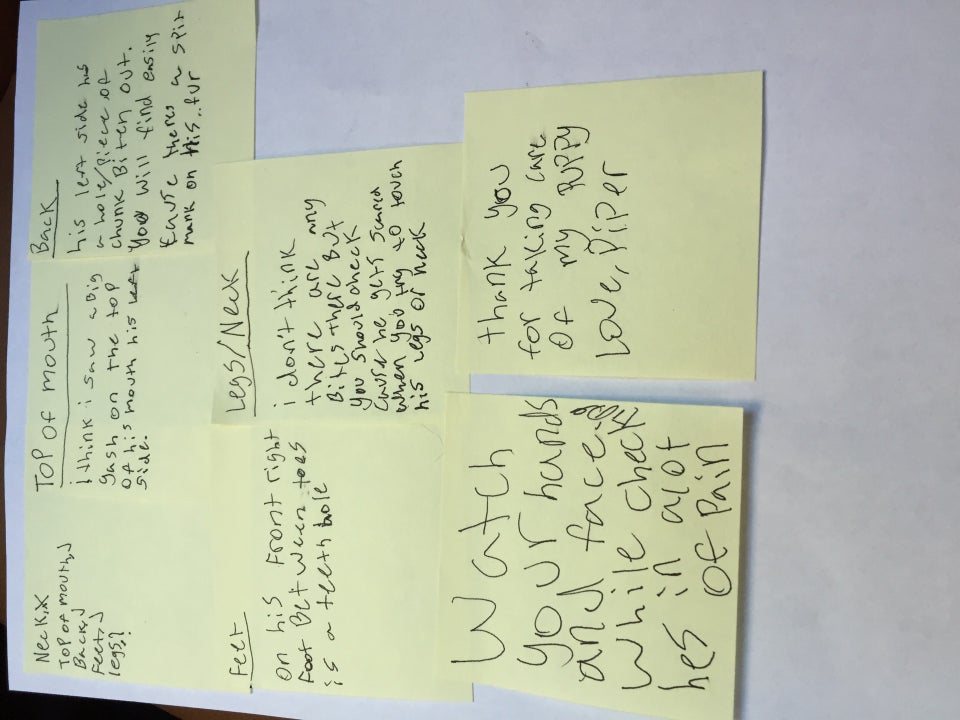 Neck,X
Top of mouth,√
Back,√
Feet,√
legs,?
Top of mouth
i think i saw a Big
gash on the top
of his mouth his left
side.
Back
his left side has
a hole/piece of
chunk Biten out.
You will find easily
cause theres a spit
mark on his fur
Feet
on his Front right
foot Between toes
is a teeth hole
Legs/Neck
i don't think
there are any
Bites there But
you should check
cause he gets scared
when you try to touch
his legs or neck
Watch
your hands
and face
while check
hes in alot
of pain
thank you
for taking care
of my puppy
Love, Piper